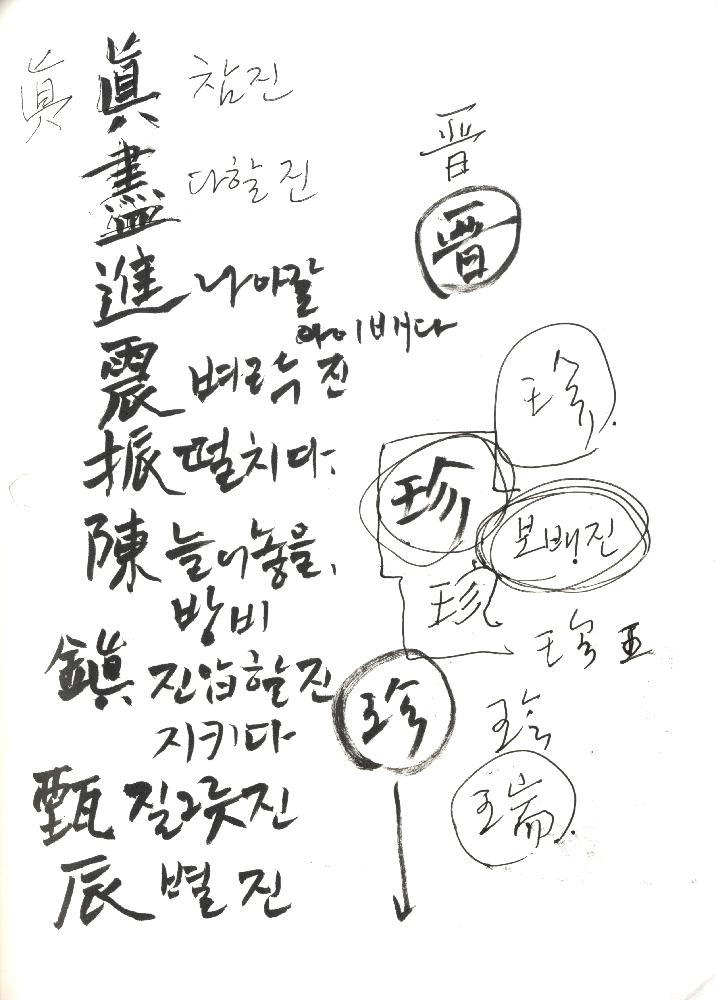 眞 眞 참진
盡 다할진
進 나아갈
아이배다
震 벼락 진
振 떨치다.
陳 늘어놓을,
방비
鎭 진압할진
지키다
甄 질그릇진
辰 별 진
晋
晋
珍
珍
보배진
珍
珍 玉
珍
珍
瑞